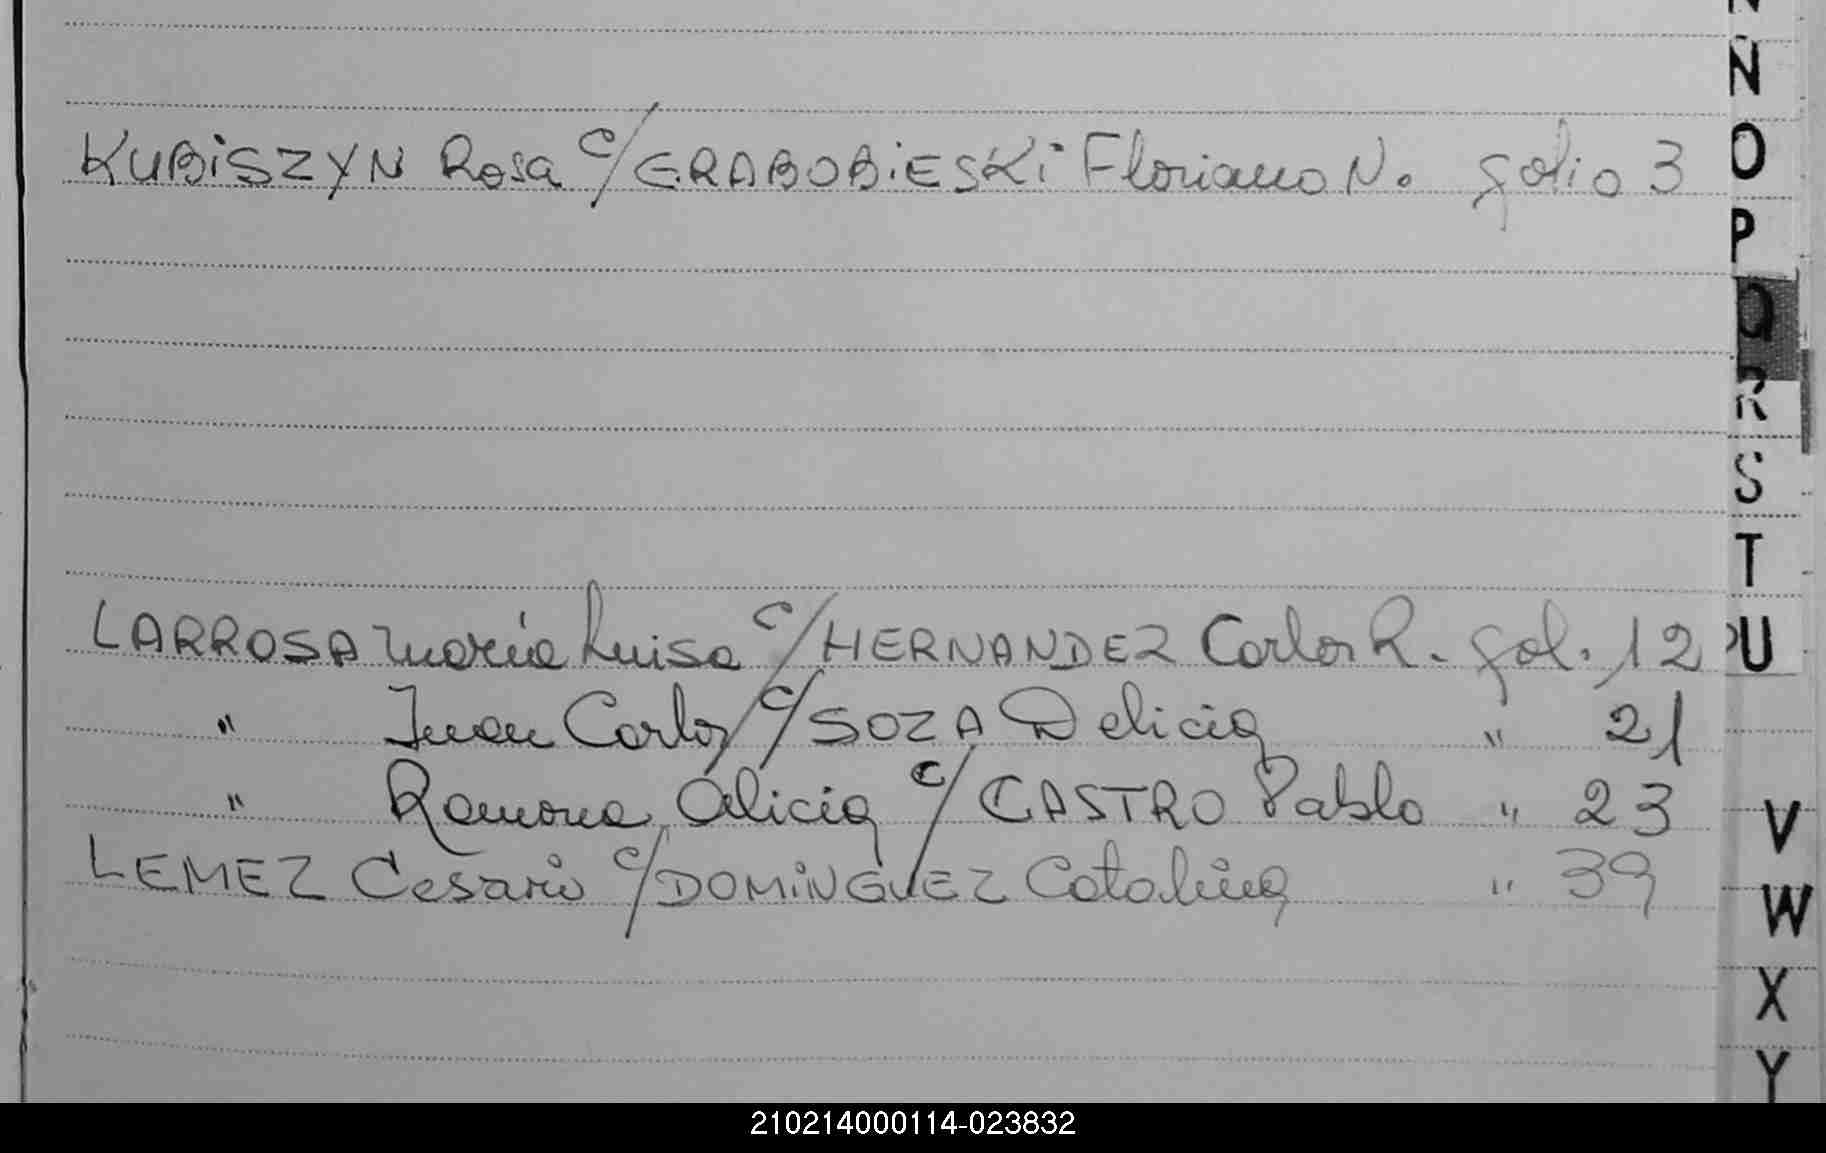 KUBISZYN Rosa c/ GRABOBIESKI Floriano N. folio 3
LARROSA María Luisa c/ HERNANDEZ Carlos R. fol. 12
" Juan Carlos c/ SOZA Delicia " 21
" Ramona Alicia c/ CASTRO Pablo " 23
LEMEZ Cesario c/ DOMINGUEZ Catalina " 39
N
O
P
Q
R
S
T
U
V
W
X
Y
210214000114-023832